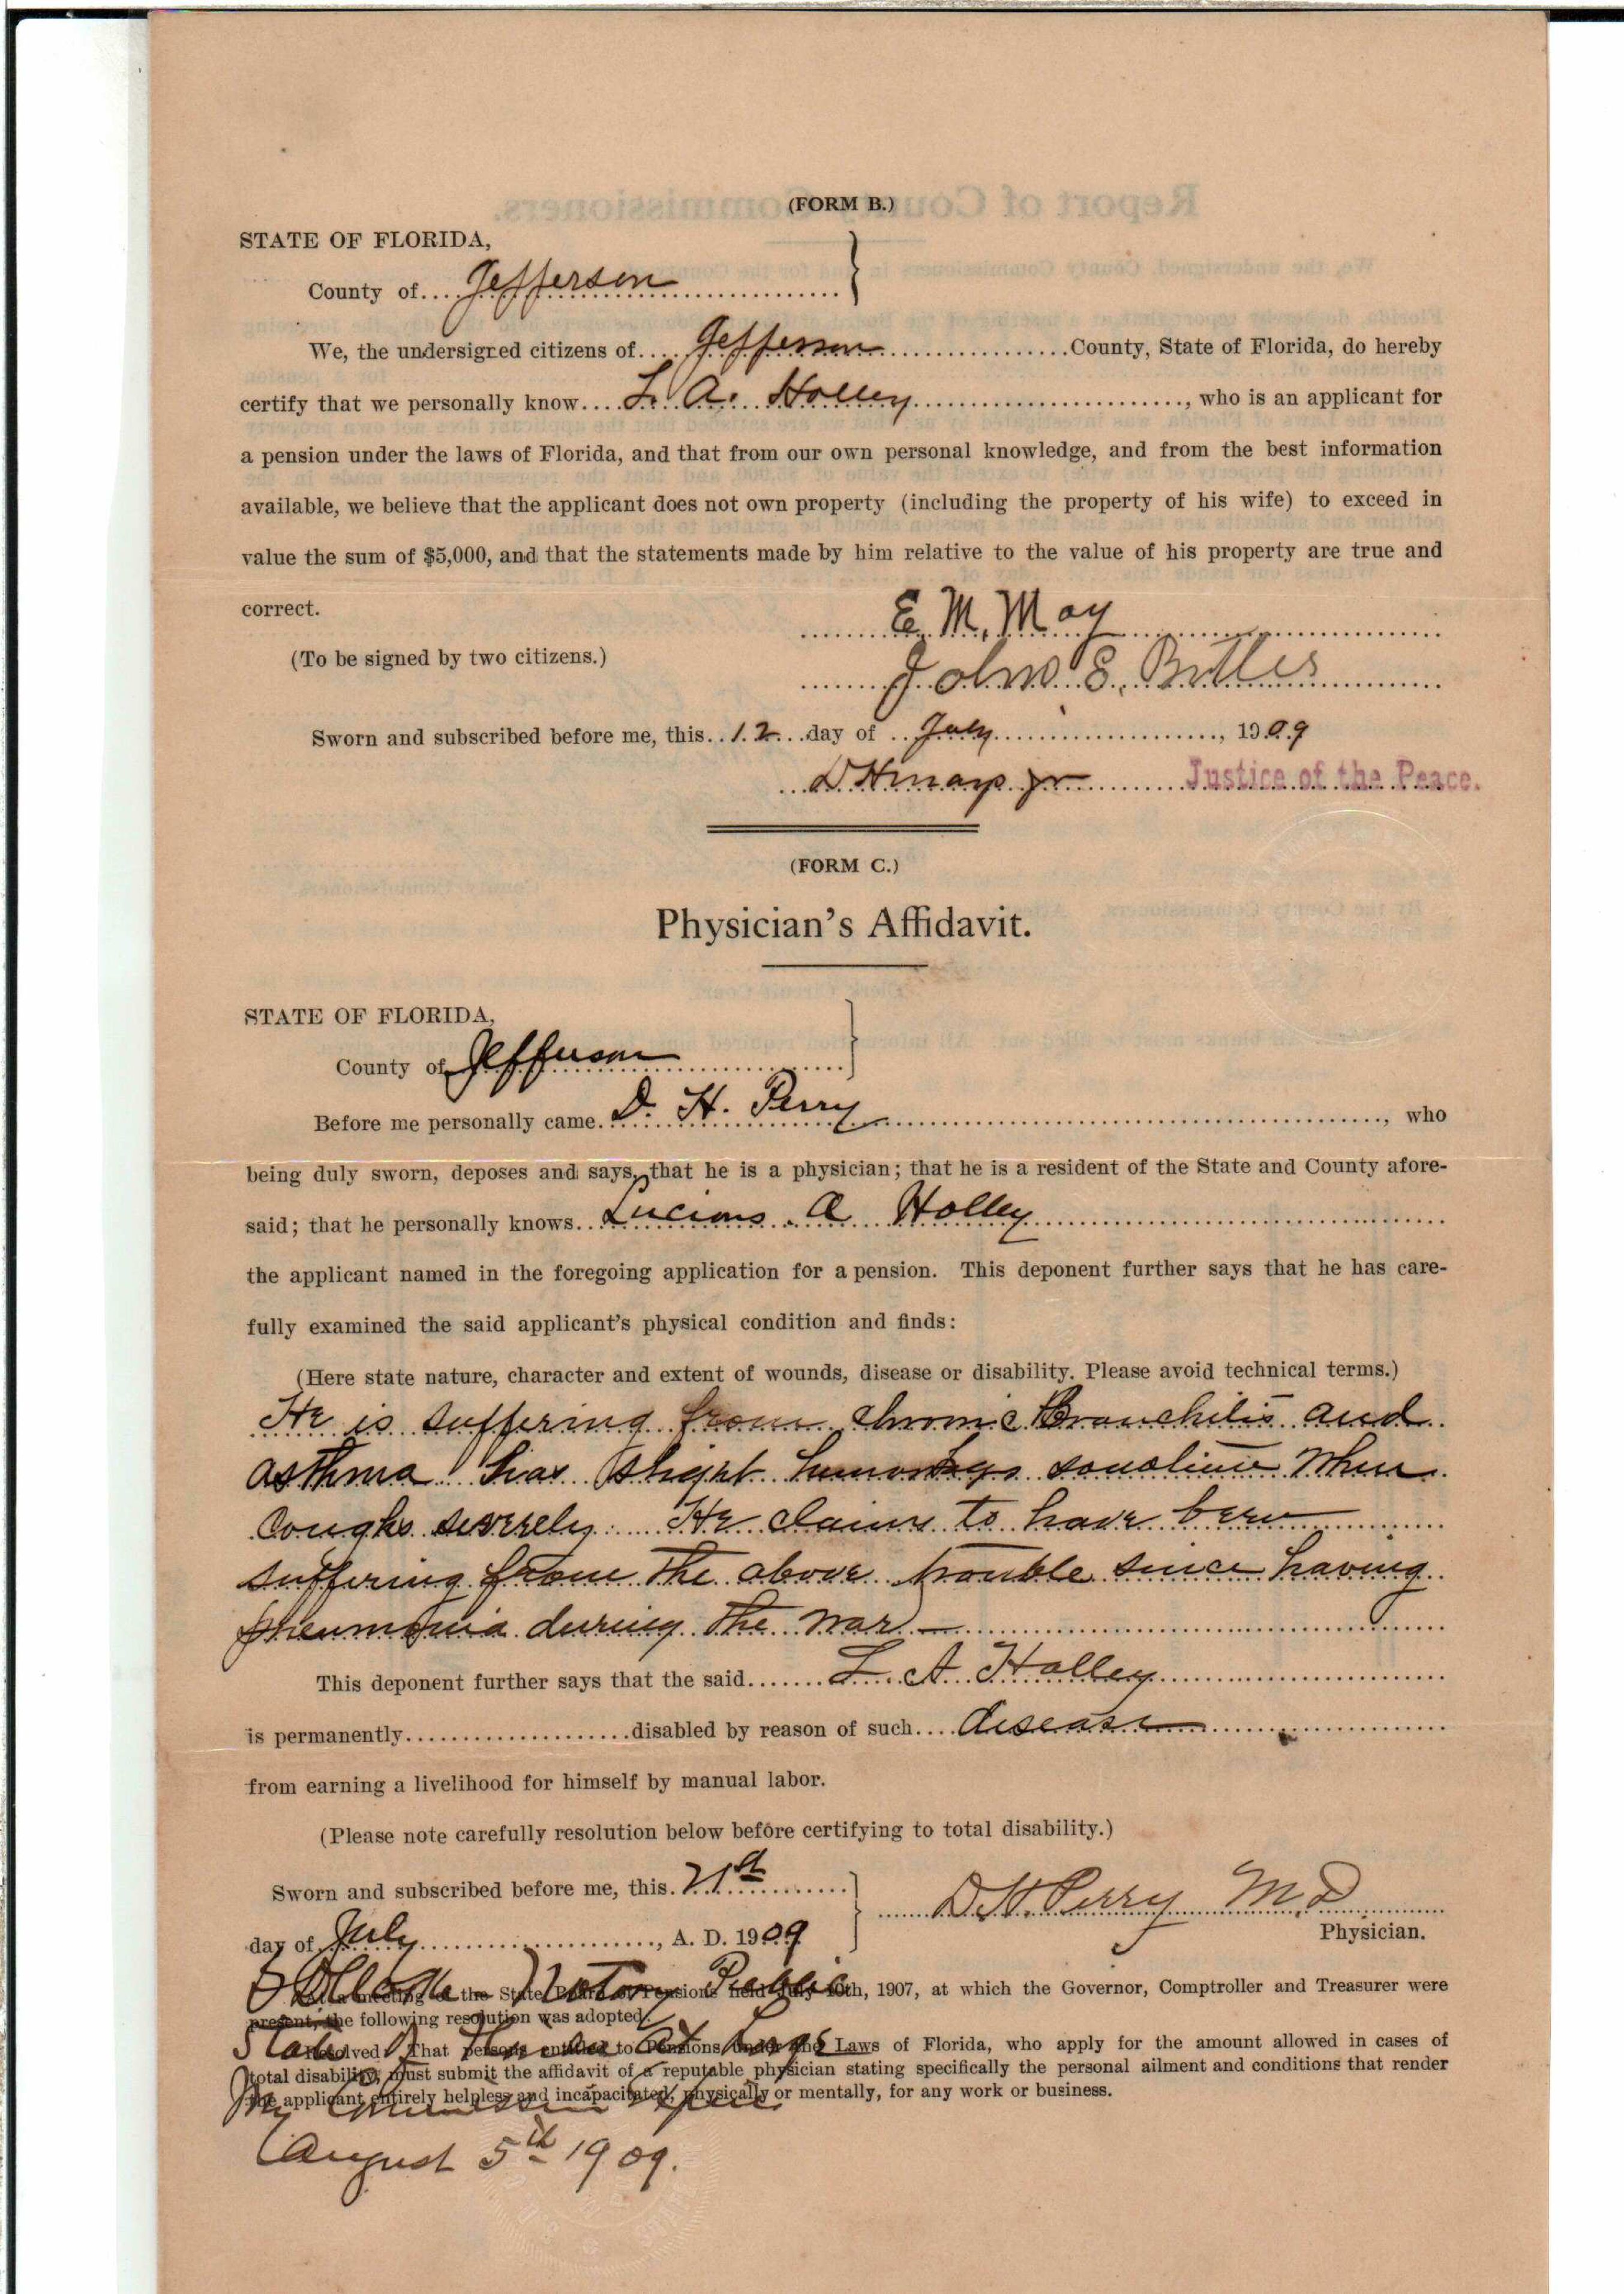 (FORM B.)
STATE OF FLORIDA,
County of....Jefferson
We, the undersigned citizens of....Jefferson....County, State of Florida, do hereby
certify that we personally know....L. A. Holley...., who is an applicant for
a pension under the laws of Florida, and that from our own personal knowledge, and from the best information
available, we believe that the applicant does not own property (including the property of his wife) to exceed in
value the sum of $5,000, and that the statements made by him relative to the value of his property are true and
correct.
E. M. May
(To be signed by two citizens.)
John E.
Sworn and subscribed before me, this..12...day of ..July...., 1909
Justice of the Peace.
(FORM C.)
Physician's Affidavit.
STATE OF FLORIDA,
County of Jefferson
Before me personally came. D. H. Perry...., who
being duly sworn, deposes and says, that he is a physician; that he is a resident of the State and County afore-
said; that he personally knows...Lucious A Holley
the applicant named in the foregoing application for a pension. This deponent further says that he has care-
fully examined the said applicant's physical condition and finds:
(Here state nature, character and extent of wounds, disease or disability. Please avoid technical terms.)
He is suffering from chronic Bronchitis and
asthma has slight when
coughs severely. He claims to have been
suffering from the above trouble since having
pneumonia during the war —
This deponent further says that the said.......L. A. Holley
is permanently....................disabled by reason of such....disease
from earning a livelihood for himself by manual labor.
(Please note carefully resolution below before certifying to total disability.)
Sworn and subscribed before me, this. 21st
D. H. Perry M. D.
day of July...., A. D. 1909
Physician.
Notary Public
At a meeting of the State Board of Pensions held July 10th, 1907, at which the Governor, Comptroller and Treasurer were
present, the following resolution was adopted:
State of Florida at Large
Resolved: That persons entitled to Pensions under the Laws of Florida, who apply for the amount allowed in cases of
total disability, must submit the affidavit of a reputable physician stating specifically the personal ailment and conditions that render
the applicant entirely helpless and incapacitated, physically or mentally, for any work or business.
My Commission Expires
August 5th 1909.